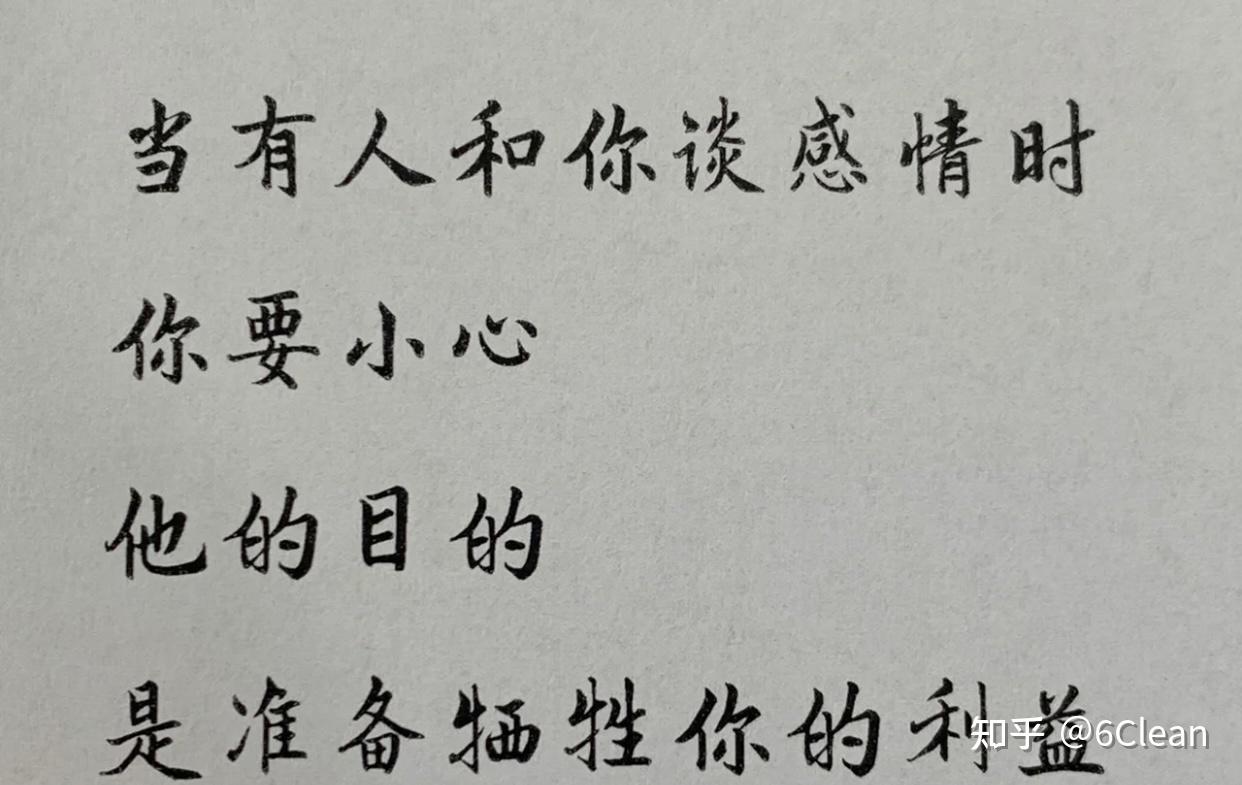 当有人和你谈感情时
你要小心
他的目的
是准备牺牲你的利益
知乎 @6Clean